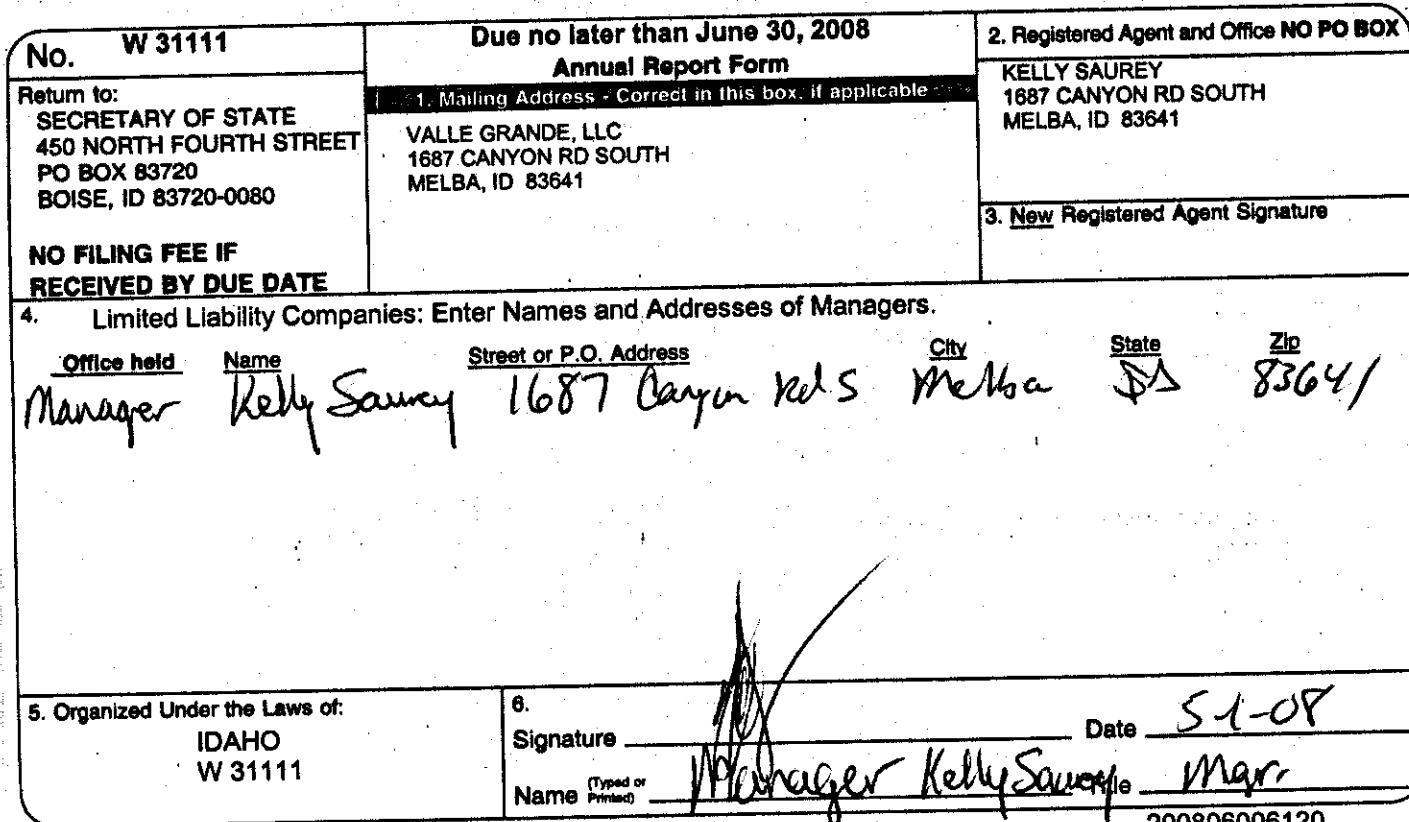 No. W 31111
Return to:
SECRETARY OF STATE
450 NORTH FOURTH STREET
PO BOX 83720
BOISE, ID 83720-0080
NO FILING FEE IF
RECEIVED BY DUE DATE
Due no later than June 30, 2008
Annual Report Form
1. Mailing Address - Correct in this box, if applicable
VALLE GRANDE, LLC
1687 CANYON RD SOUTH
MELBA, ID 83641
2. Registered Agent and Office NO PO BOX
KELLY SAUREY
1687 CANYON RD SOUTH
MELBA, ID 83641
3. New Registered Agent Signature
4. Limited Liability Companies: Enter Names and Addresses of Managers.
Office held Name Street or P.O. Address City State Zip
Manager Kelly Saurey 1687 Canyon Rd S Melba ID 83641
5. Organized Under the Laws of:
IDAHO
W 31111
6.
Signature Date 5-1-08
Name (Typed or Printed) Manager Kelly Saurey Title Mgr.
200806006120